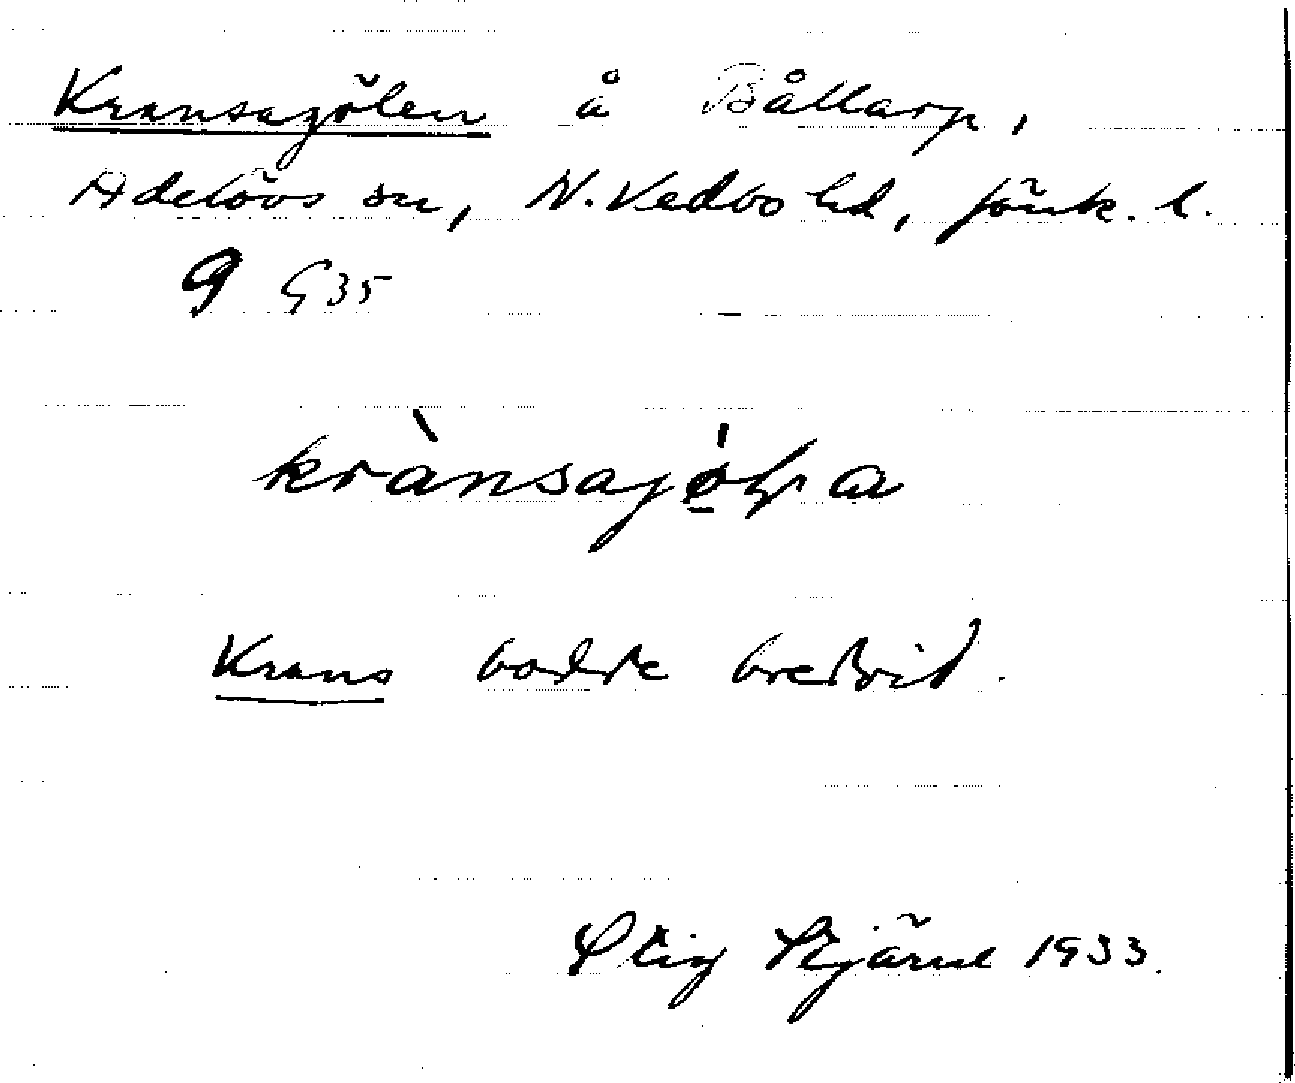 Kransagölen å Bållarp,
Adelövs sn, N. Vedbo hd, Jönk. l.
9 G35
krànsajǿ̠lƞa
Krans bodde bredvid.
Stig Stjärne 1933.